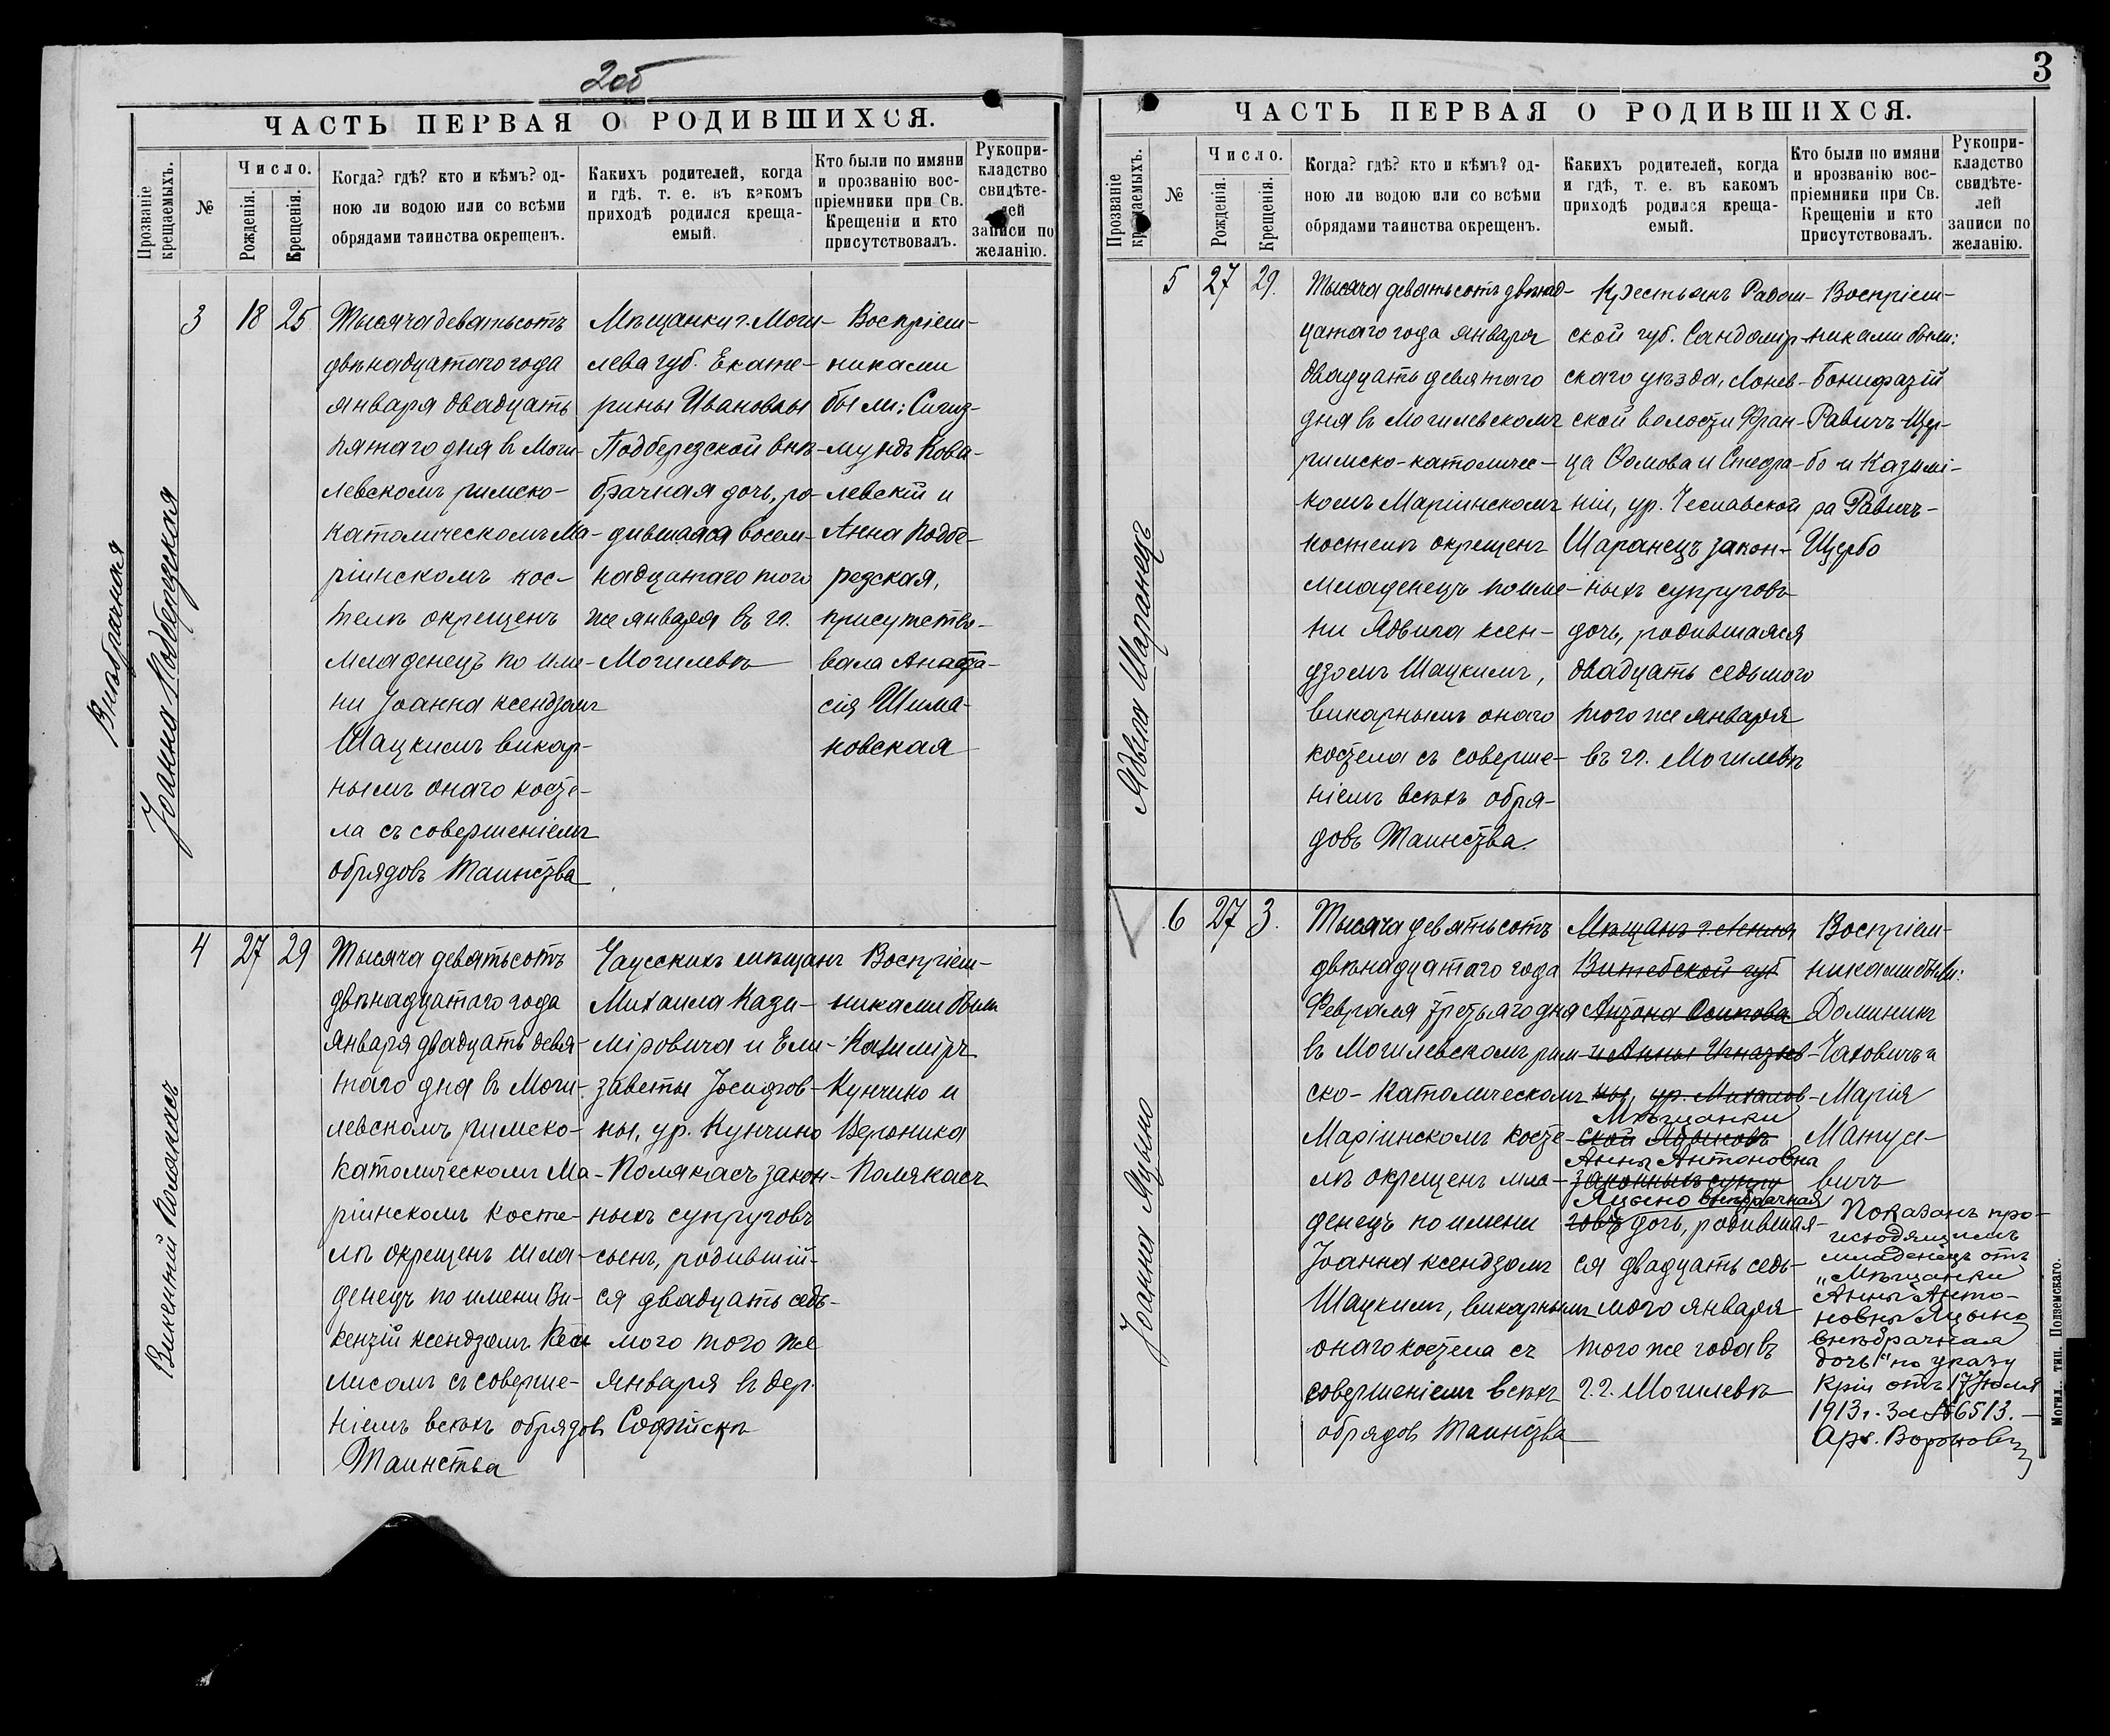 2об
ЧАСТЬ ПЕРВАЯ О РОДИВШИХСЯ.
Прозваніе крещаемыхъ.
№
Число.
Рожденія.
Крещенія.
Когда? гдѣ? кто и кѣмъ? од-
ною ли водою или со всѣми
обрядами таинства окрещенъ.
Какихъ родителей, когда
и гдѣ, т. е. въ какомъ
приходѣ родился креща-
емый.
Кто были по имяни
и прозванію вос-
пріемники при Св.
Крещеніи и кто
присутствовалъ.
Рукопри-
кладство
свидѣте-
лей
записи по
желанію.
Внѣбрачная
Іоанна Подберезская
3
18
25
Тысяча девятьсотъ
двѣнадцатаго года
января двадцать
пятаго дня въ Моги-
левскомъ римско-
католическомъ Ма-
ріинскомъ кос-
телѣ окрещенъ
младенецъ по име-
ни Іоанна ксендзомъ
Шацкимъ викар-
нымъ онаго косте-
ла съ совершеніемъ
обрядовъ Таинства
Мѣщанки г. Моги-
лева губ. Екате-
рины Ивановны
Подберезской внѣ-
брачная дочь, ро-
дившаяся восем-
надцатаго того
же января въ гл.
Могилевѣ
Воспріем-
никами
были: Сигиз-
мундъ Кова-
левскій и
Анна Подбе-
резская,
присутство-
вала Анаста-
сія Шима-
новская
Викентій Полякасъ
4
27
29
Тысяча девятьсотъ
двѣнадцатаго года
Января двадцать девя-
таго дня въ Моги-
левскомъ римско-
католическомъ Ма-
ріинскомъ косте-
лѣ окрещенъ мла-
денецъ по имени Ви-
кентій ксендзомъ
лисомъ съ соверше-
ніемъ всѣхъ обрядовъ
Таинства
Чаусскихъ мѣщанъ
Михаила Кази-
міровича и Ели-
заветы Іосифов-
ны, ур. Кунчино
Полякасъ закон-
ныхъ супруговъ
сынъ, родившій-
ся двадцать седь-
мого того же
Января въ дер.
Софійскѣ
Воспріем-
никами были
Казиміръ
Кунчино и
Вероника
Полякасъ
3
ЧАСТЬ ПЕРВАЯ О РОДИВШИХСЯ.
Прозваніе крещаемыхъ.
№
Число.
Рожденія.
Крещенія.
Когда? гдѣ? кто и кѣмъ? од-
ною ли водою или со всѣми
обрядами таинства окрещенъ.
Какихъ родителей, когда
и гдѣ, т. е. въ какомъ
приходѣ родился креща-
емый.
Кто были по имяни
и прозванію вос-
пріемники при Св.
Крещеніи и кто
присутствовалъ.
Рукопри-
кладство
свидѣте-
лей
записи по
желанію.
Ядвига Шаранецъ
5
27
29.
Тысяча девятьсотъ двѣнад-
цатаго года января
двадцать девятаго
дня въ Могилевскомъ
римско-католичес-
комъ Маріинскомъ
костелѣ окрещенъ
младенецъ по име-
ни Ядвига ксен-
дзомъ Шацкимъ,
викарнымъ онаго
костела съ соверше-
ніемъ всѣхъ обря-
довъ Таинства.
Крестьянъ Радом-
ской губ. Сандомір-
скаго уѣзда, Лонев-
ской волости Фран-
ца Ѳомова и Стефа-
ніи, ур. Чеславской
Шаранецъ закон-
ныхъ супруговъ
дочь, родившаяся
двадцать седьмого
того же января
въ гл. Могилевѣ
Воспріем-
никами были:
Бонифазій
Равичъ-Щер-
бо и Казимі-
ра Равичъ-
Щербо
Іоанна Яцыно
6
27
3.
Тысяча девятьсотъ
двѣнадцатаго года
Февраля третьяго дня
въ Могилевскомъ рим-
ско-Католическомъ
Маріинскомъ косте-
лѣ окрещенъ мла-
денецъ по имени
Іоанна ксендзомъ
Шацкимъ, викарнымъ
онаго костела съ
совершеніемъ всѣхъ
обрядовъ Таинства
Мѣщанъ г. Лепеля
Витебской губ
Антона Осипова
и Анны Игнатьев-
ны, ур. Михалов-
Мѣщанки
ской
Анны Антоновны
законныхъ супру
Яцыно внѣбрачная
говъ дочь, родившая-
ся двадцать седь-
мого января
того же года въ
г. г. Могилевѣ
Воспріем-
никами были:
Доминикъ
Чаховичъ и
Марія
Матусе-
вичъ
Показанъ про-
исходящимъ
младенецъ отъ
„Мѣщанки
Анны Анто-
новны Яцыно
внѣбрачная
дочь" по указу
Кріи отъ 17 Іюля
1913 г. За № 6513. —
Арх. Вороновичъ
Могил., тип. Подземскаго.